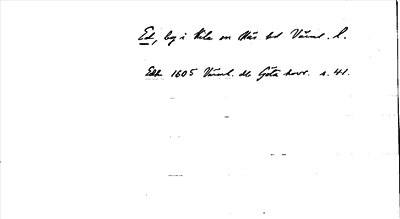 Ed, by i Kila sn Näs hd Värml. l.
Edh 1605 Värml. o Göta hovr. s. 41.